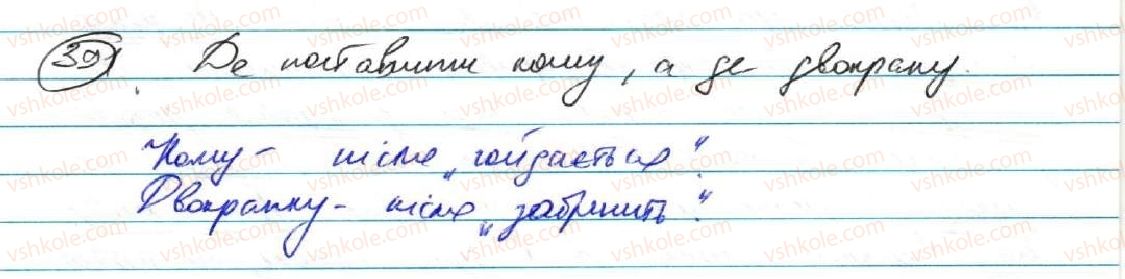 39) Де поставити кому, а де двокрапку.
Кому - після „гойдається“.
Двокрапку - після „забринить“.